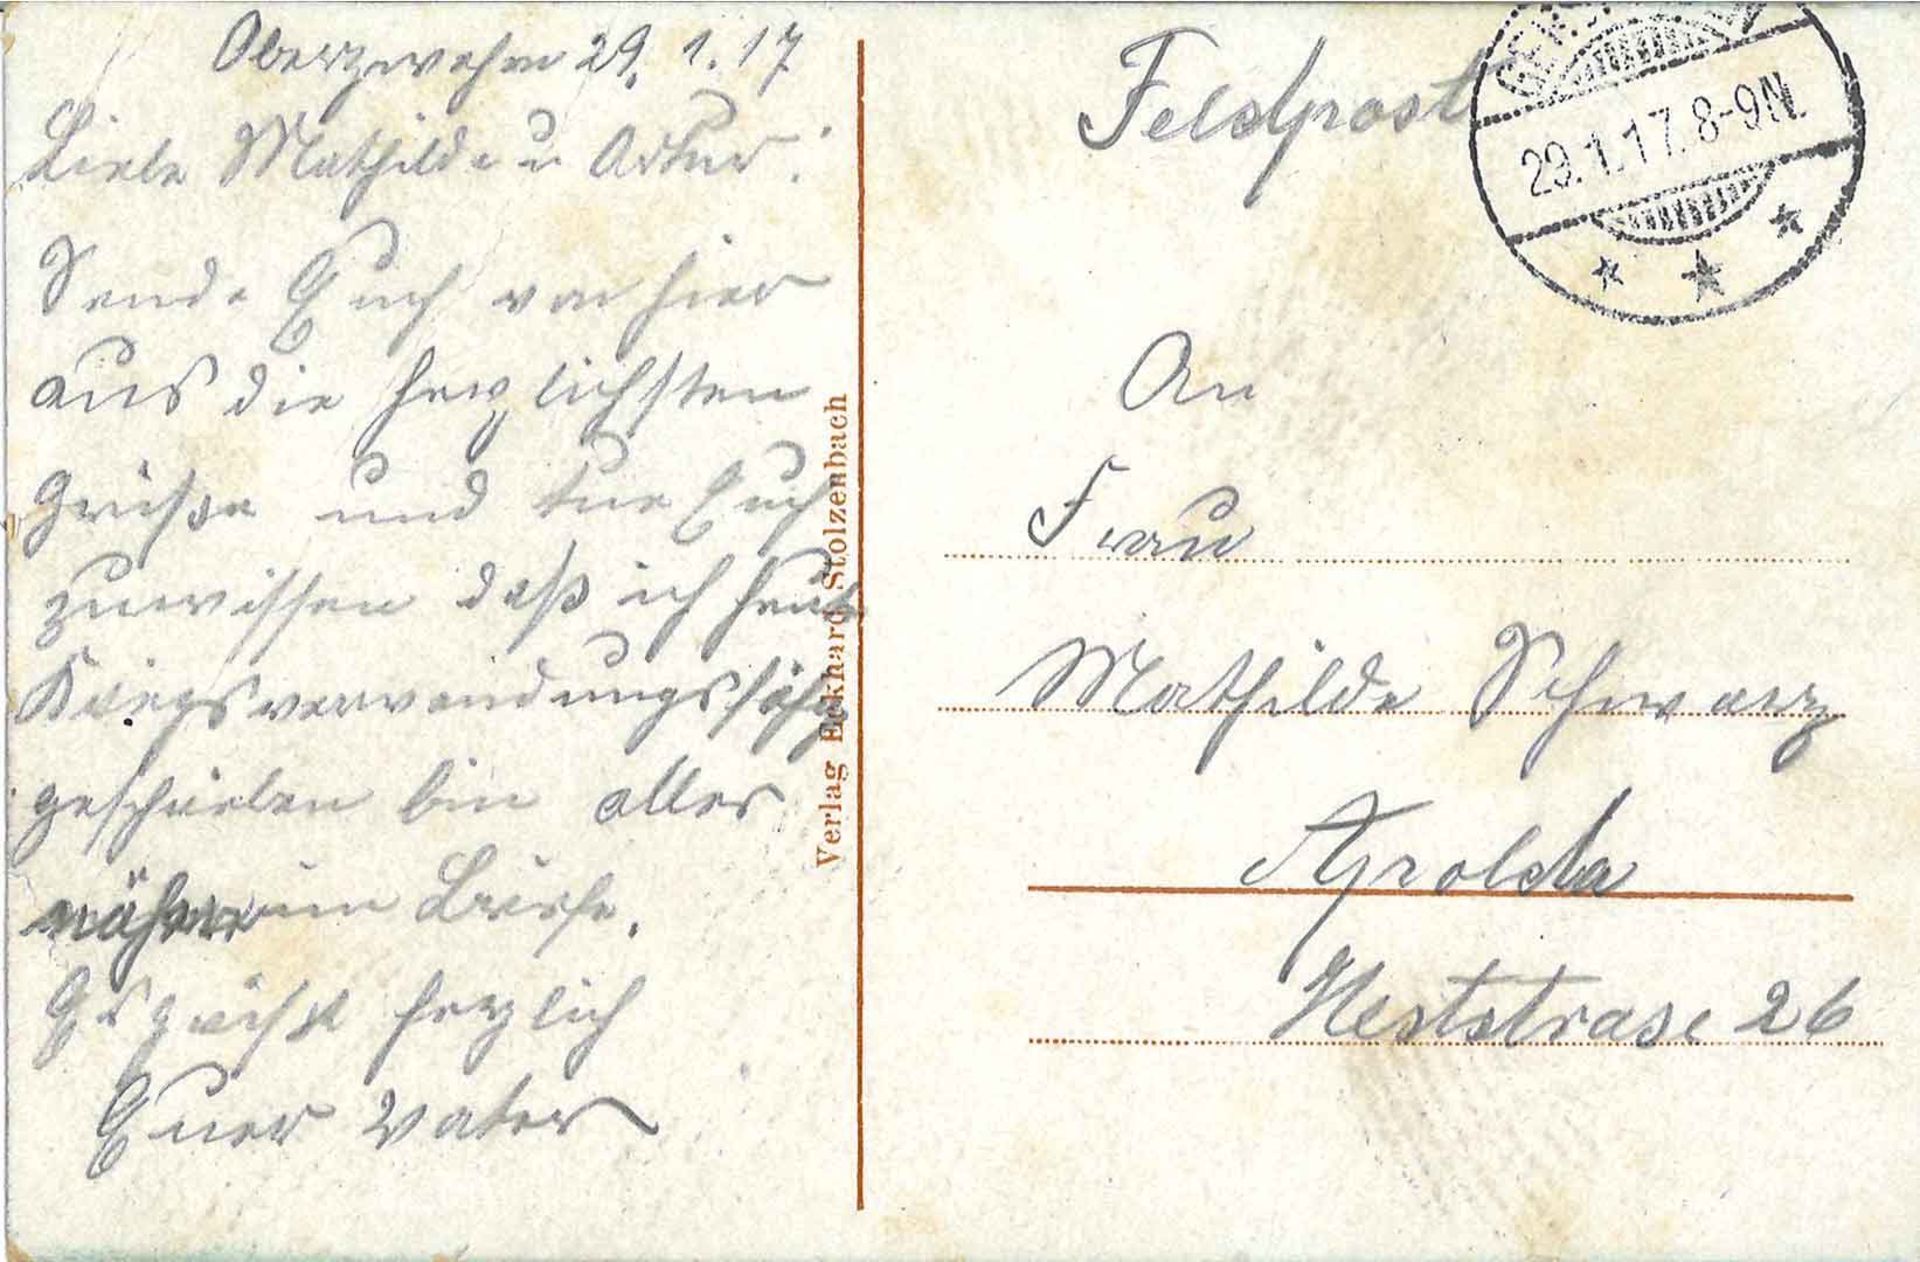 Oberzwehrn 29. 1. 17
Liebe Mathilde u Artur!
Sende Euch von hier
aus die herzlichsten
Grüße und tue Euch
zuwissen daß ich heute
Kriegsverwendungsfähig
geschrieben bin alles
nähere im Briefe.
Es grüßt herzlich
Euer Vater
Verlag Eckhard Stolzenbach
Feldpost
29.1.17. 8-9N.
An
Frau
Mathilde Schwarz
Apolda
26